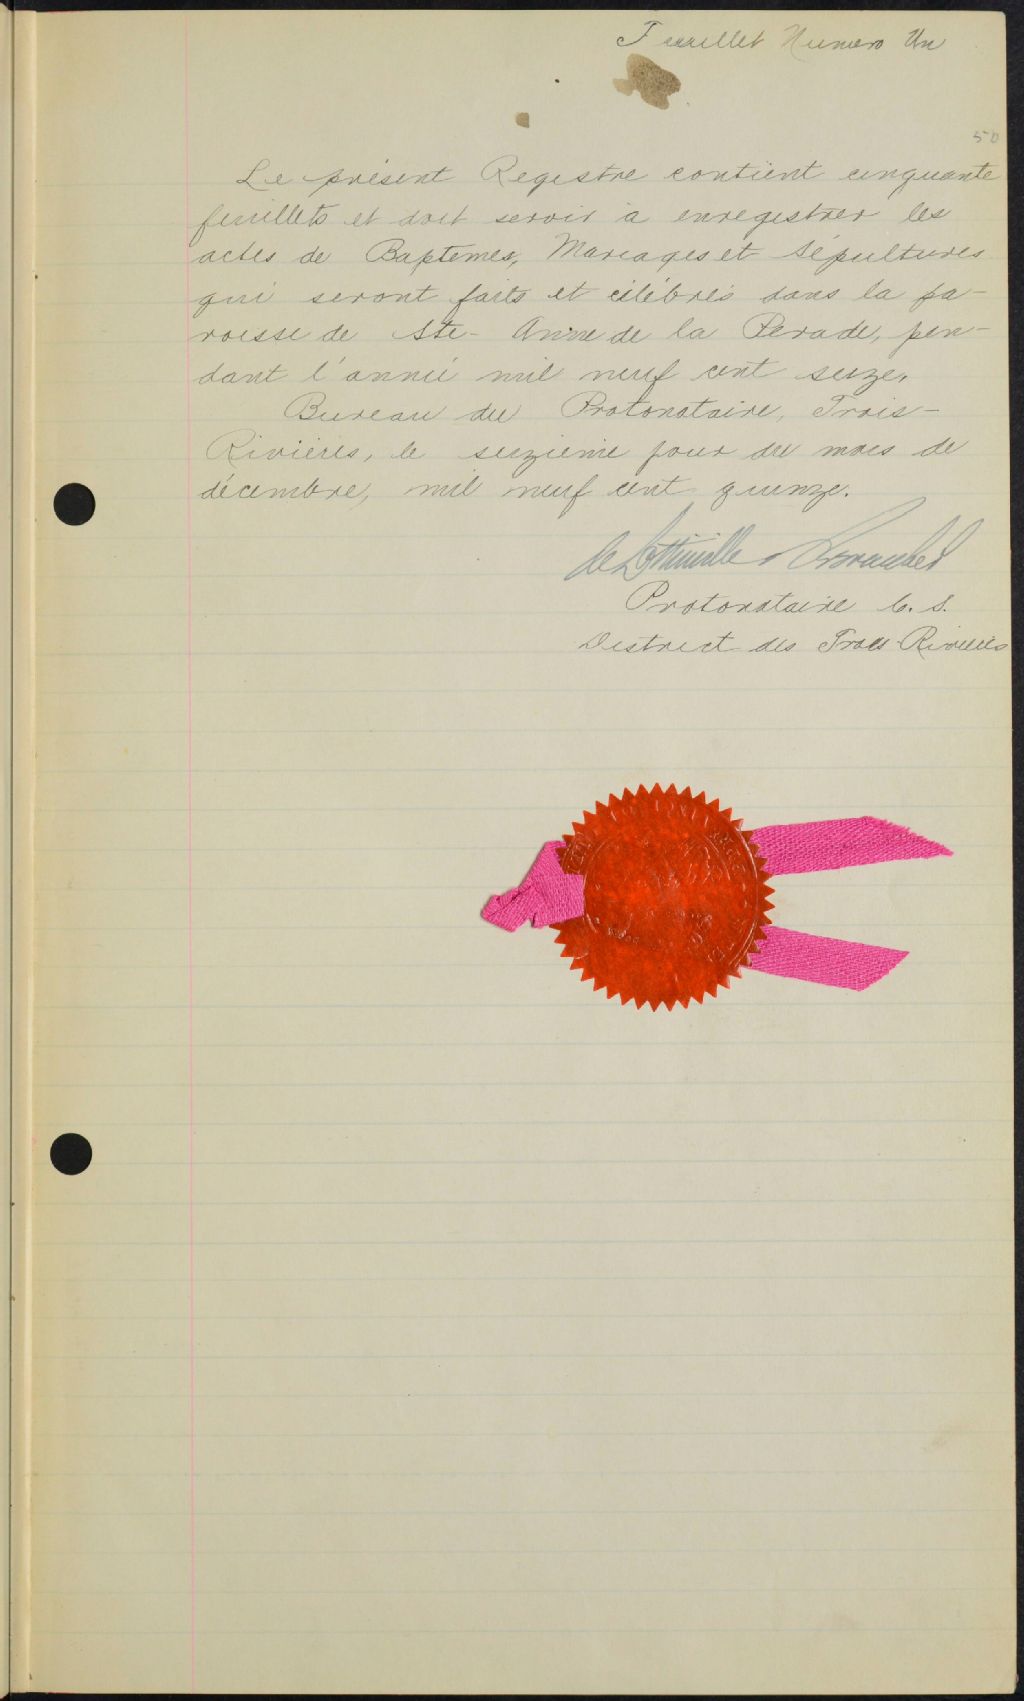 Feuillet Numero Un
50
Le présent Registre contient cinquante
feuillets et doit servir à enregistrer les
actes de Baptemes, Mariages et Sépultures
qui seront faits et célébrés dans la pa-
roisse de Ste-Anne de la Perade, pen-
dant l'année mil neuf cent seize.
Bureau du Protonotaire, Trois-
Rivières, le seizième jour du mois de
décembre, mil neuf cent quinze.
de Lottinville
Protonotaire C. S.
District des Trois-Rivières